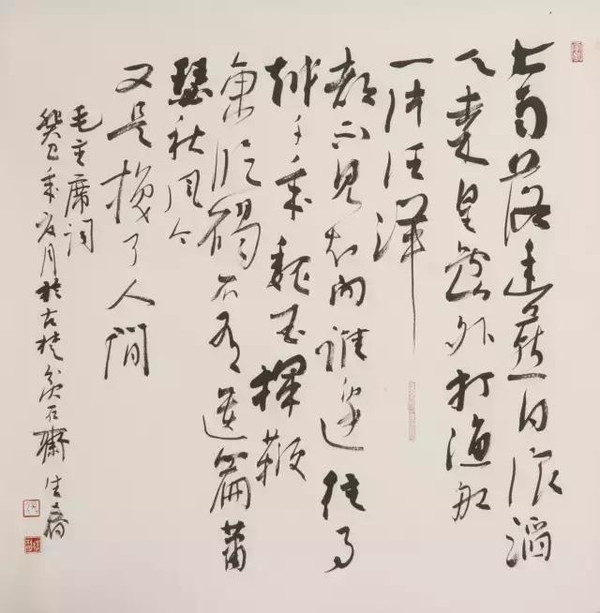 大雨落幽燕白浪滔
天秦皇島外打漁船
一片汪洋
都不見知向誰邊往事
越千年魏武揮鞭
東臨碣石有遺篇蕭
瑟秋風今
又是換了人間
毛主席词
癸巳年夏月於古楚石齋